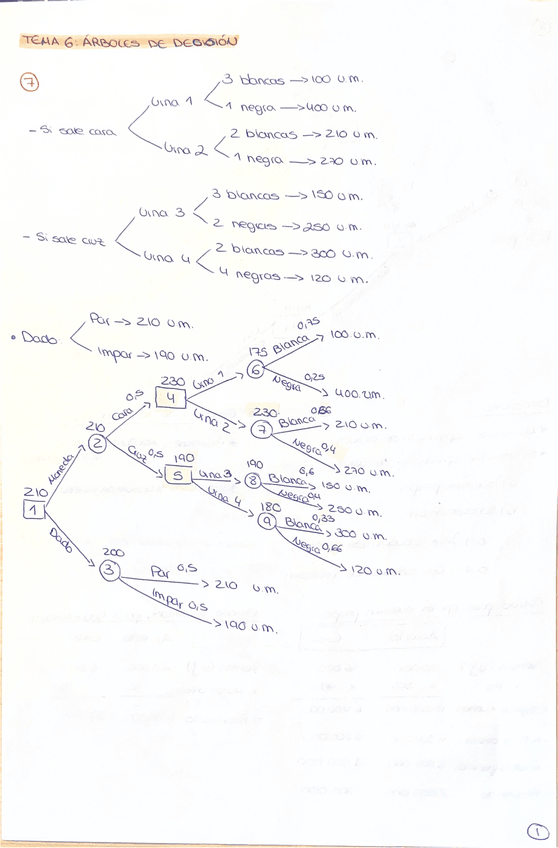 TEMA 6: ÁRBOLES DE DECISIÓN
7
3 blancas → 100 u.m.
Urna 1
1 negra → 400 u.m.
- Si sale cara
2 blancas → 210 u.m.
Urna 2
1 negra → 270 u.m.
3 blancas → 150 u.m.
Urna 3
2 negras → 250 u.m.
- Si sale cruz
2 blancas → 300 u.m.
Urna 4
4 negras → 120 u.m.
Par → 210 u.m.
• Dado
Impar → 190 u.m.
210 1
Moneda
210 2
Cara 0,5
230 4
Urna 1
175 6
Blanca 0,75 100 u.m.
Negra 0,25 400 u.m.
Urna 2
230 7
Blanca 0,66 210 u.m.
Negra 0,4 270 u.m.
Cruz 0,5
190 5
Urna 3
190 8
Blanca 0,6 150 u.m.
Negra 0,4 250 u.m.
Urna 4
180 9
Blanca 0,33 300 u.m.
Negra 0,66 120 u.m.
Dado
200 3
Par 0,5 210 u.m.
Impar 0,5 190 u.m.
1